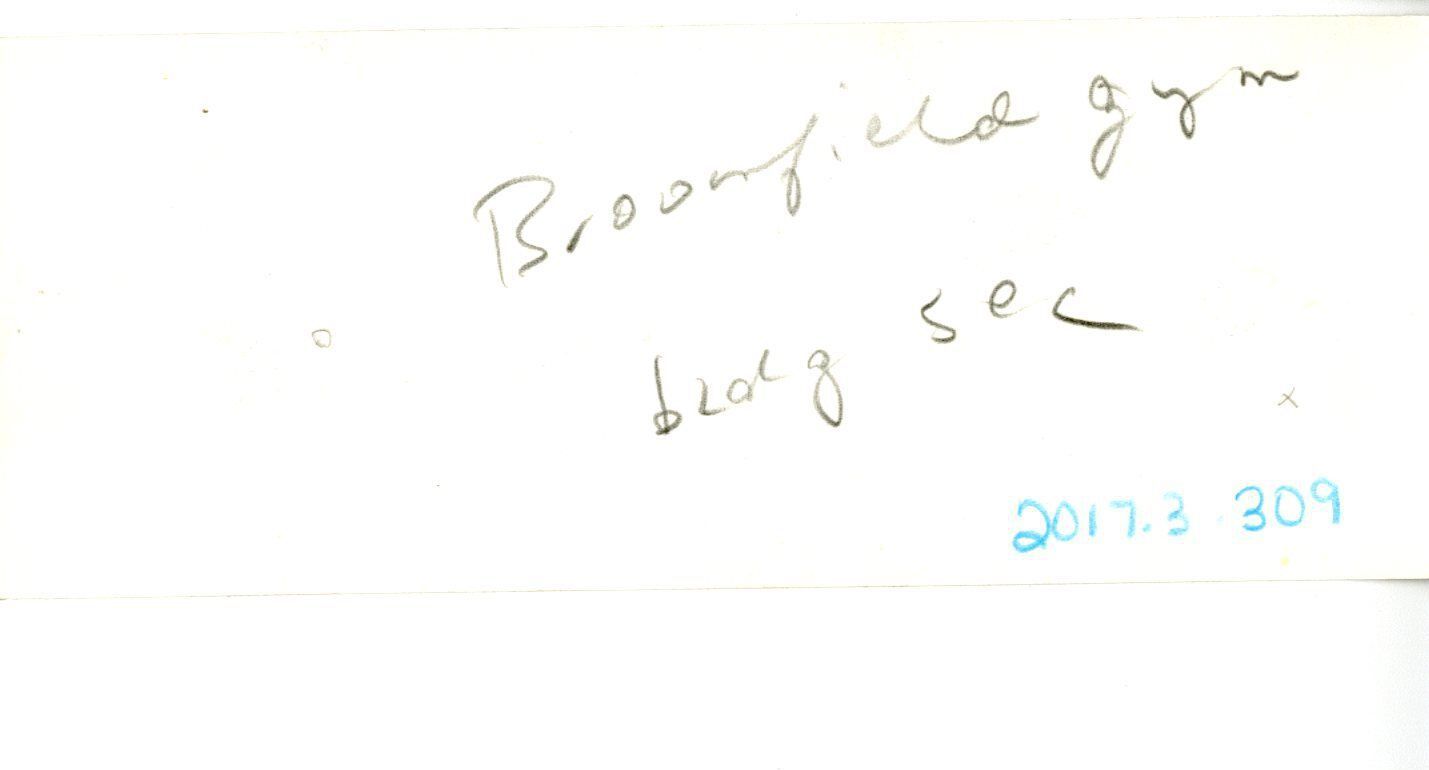 Broomfield gym
bldg sec
2017.3.309